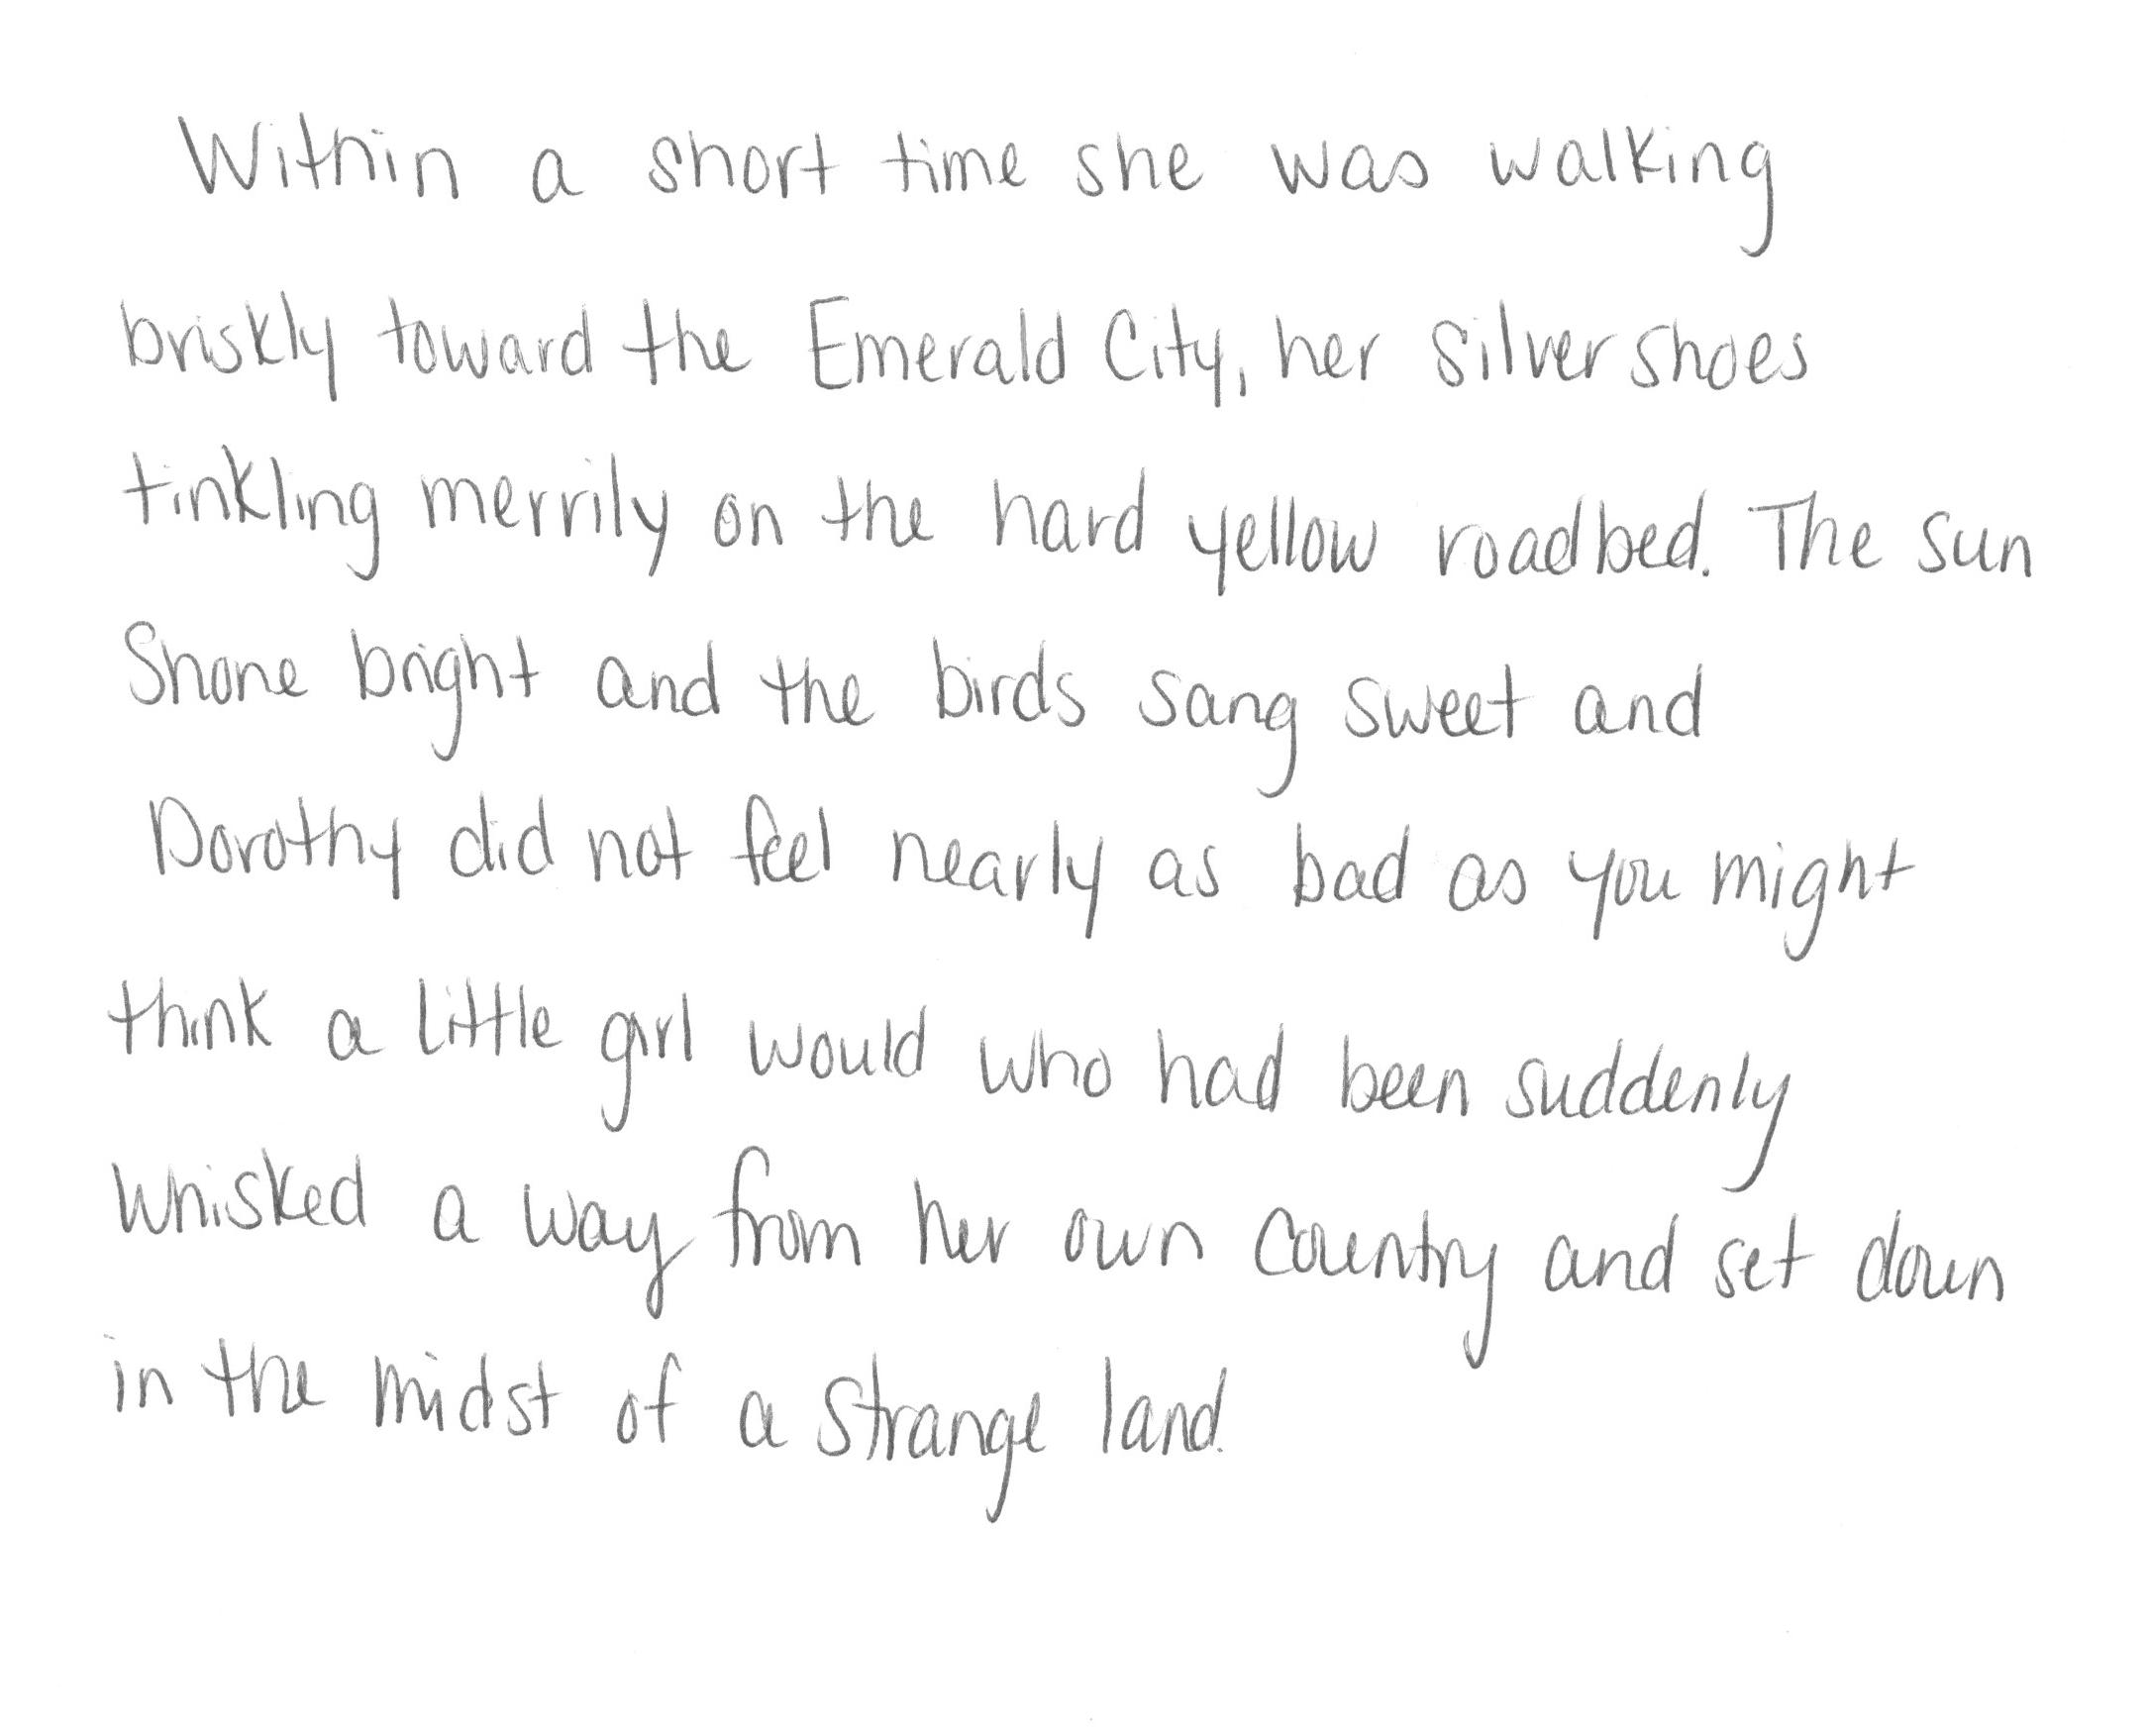 Within a short time she was walking
briskly toward the Emerald City, her silver shoes
tinkling merrily on the hard yellow roadbed. The sun
shone bright and the birds sang sweet and
Dorothy did not feel nearly as bad as you might
think a little girl would who had been suddenly
whisked a way from her own country and set down
in the midst of a strange land.